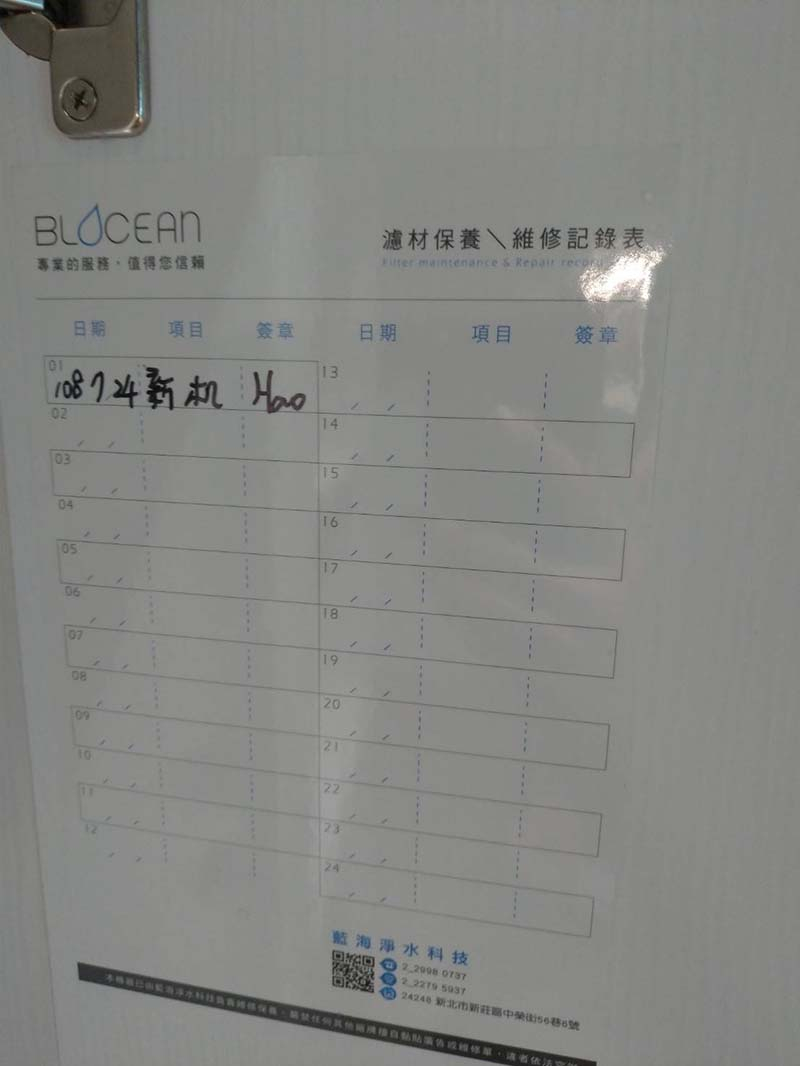 BLOCEAN
專業的服務，值得您信賴
濾材保養＼維修記錄表
Filter maintenance & Repair record
日期 項目 簽章 日期 項目 簽章
01 108 7 24 新机 Hao
02 / /
03 / /
04 / /
05 / /
06 / /
07 / /
08 / /
09 / /
10 / /
11 / /
12 / /
13 / /
14 / /
15 / /
16 / /
17 / /
18 / /
19 / /
20 / /
21 / /
22 / /
23 / /
24 / /
藍海淨水科技
2_2998 0737
2_2279 5937
24248 新北市新莊區中榮街56巷6號
本機器已由藍海淨水科技負責維修保養，嚴禁任何其他廠牌擅自黏貼廣告或維修單，違者依法究